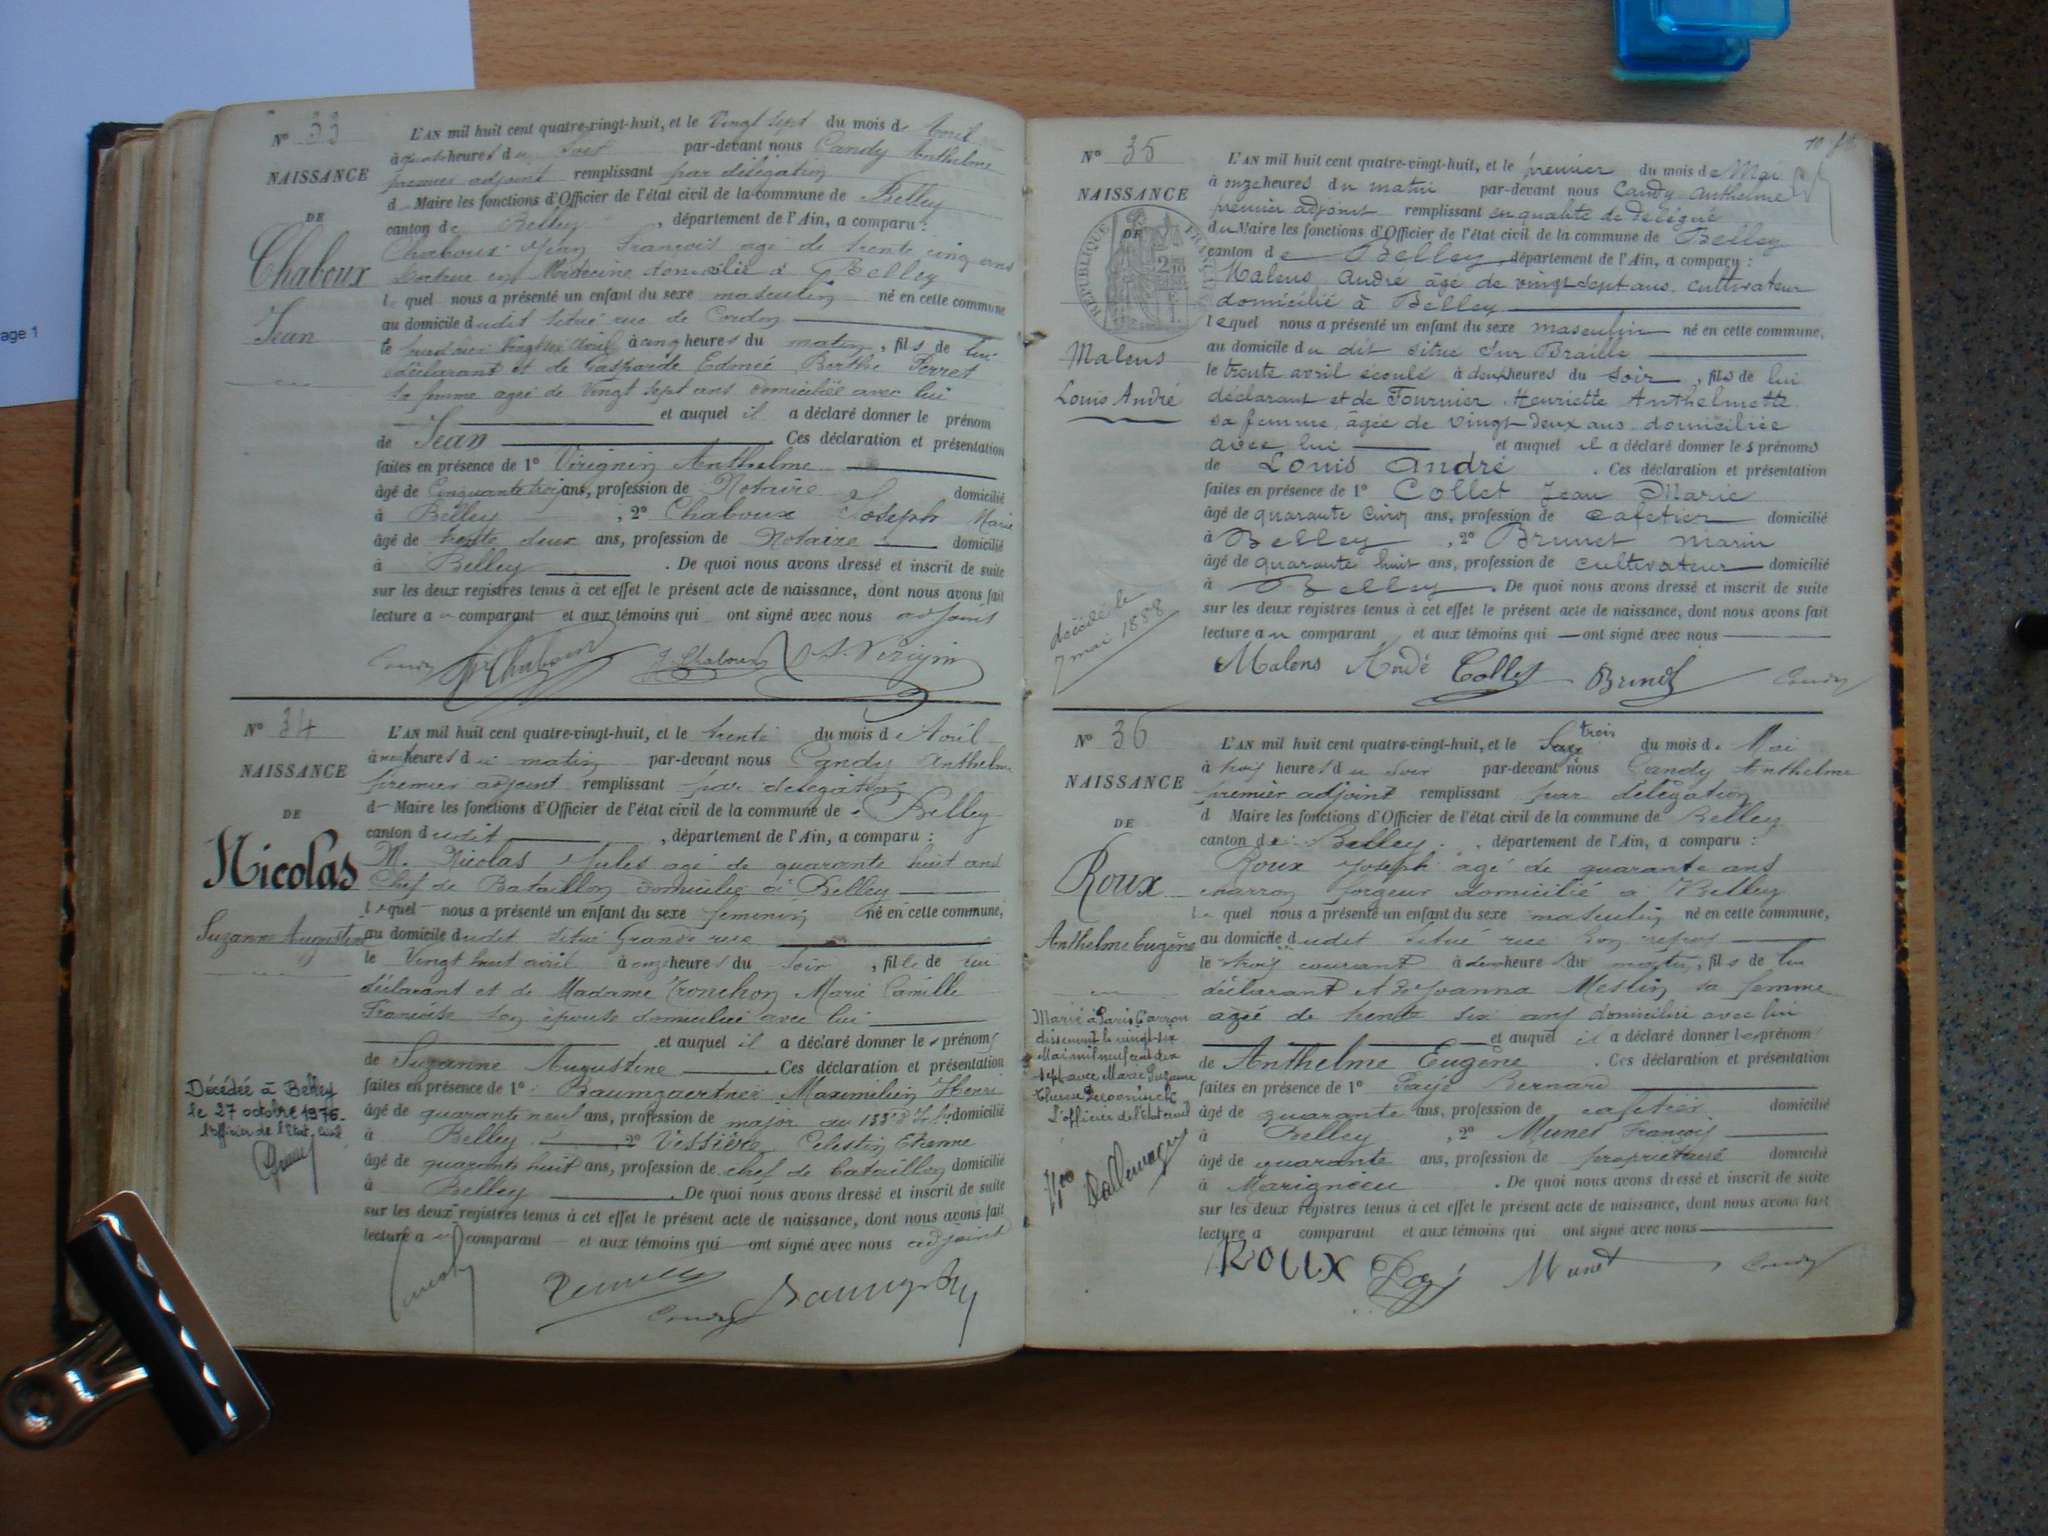 age 1
N° 33
NAISSANCE
DE
Chaboux
Jean
L'AN mil huit cent quatre-vingt-huit, et le Vingt sept du mois d Avril
à quatre heures du soir par-devant nous Candy Anthelme
premier adjoint remplissant par délégation
d Maire les fonctions d'Officier de l'état civil de la commune de Belley
canton de Belley, département de l'Ain, a comparu :
Chaboux Jean François agé de trente cinq ans
Docteur en Médecine domicilié à Belley
lequel nous a présenté un enfant du sexe masculin né en cette commune
au domicile dudit situé rue de Coudon
le à cinq heures du matin, fils de lui
déclarant et de Gasparde Edmée Berthe Perret
sa femme agée de Vingt sept ans domiciliée avec lui
et auquel il a déclaré donner le prénom
de Jean Ces déclaration et présentation
faites en présence de 1° Virignin Anthelme
âgé de Cinquante trois ans, profession de Notaire domicilié
à Belley, 2° Chaboux Joseph Marie
âgé de trente deux ans, profession de Notaire domicilié
à Belley. De quoi nous avons dressé et inscrit de suite
sur les deux registres tenus à cet effet le présent acte de naissance, dont nous avons fait
lecture au comparant et aux témoins qui ont signé avec nous adjoint
Candy Chaboux J. Chaboux A. Virignin
N° 34
NAISSANCE
DE
Nicolas
Suzanne Augustine
Décédée à Belley
le 27 octobre 1976.
l'officier de l'Etat Civil
L'AN mil huit cent quatre-vingt-huit, et le trente du mois d'Avril
à heures du matin par-devant nous Candy Anthelme
premier adjoint remplissant par délégation
d Maire les fonctions d'Officier de l'état civil de la commune de Belley
canton dudit, département de l'Ain, a comparu :
M. Nicolas Jules agé de quarante huit ans
Chef de Bataillon domicilié à Belley
lequel nous a présenté un enfant du sexe feminin né en cette commune,
au domicile dudit situé Grande rue
le Vingt huit avril à onze heures du soir, fille de lui
déclarant et de Madame Tronchon Marie Camille
Françoise son épouse domiciliée avec lui
et auquel il a déclaré donner les prénoms
de Suzanne Augustine. Ces déclaration et présentation
faites en présence de 1° Baumgaertner Maximilien Henri
âgé de quarante neuf ans, profession de major au 133e domicilié
à Belley 2° Vessière Celestin Etienne
âgé de quarante huit ans, profession de chef de bataillon domicilié
à Belley. De quoi nous avons dressé et inscrit de suite
sur les deux registres tenus à cet effet le présent acte de naissance, dont nous avons fait
lecture au comparant et aux témoins qui ont signé avec nous adjoint
Candy
N° 35
NAISSANCE
DE
RÉPUBLIQUE FRANÇAISE
Malens
Louis André
décédé le
7 mai 1888
L'AN mil huit cent quatre-vingt-huit, et le premier du mois de Mai
à onze heures du matin par-devant nous Candy Anthelme
premier adjoint remplissant en qualité de délégué
du Maire les fonctions d'Officier de l'état civil de la commune de Belley
canton de Belley, département de l'Ain, a comparu :
Malens André âgé de vingt sept ans, cultivateur
domicilié à Belley
lequel nous a présenté un enfant du sexe masculin né en cette commune,
au domicile du dit situé Sur Braille
le trente avril écoulé à deux heures du soir, fils de lui
déclarant et de Fournier Henriette Anthelmette
sa femme, âgée de vingt-deux ans, domiciliée
avec lui et auquel il a déclaré donner les prénoms
de Louis André. Ces déclaration et présentation
faites en présence de 1° Collet Jean Marie
âgé de quarante cinq ans, profession de cafetier domicilié
à Belley, 2° Brunet Marin
âgé de quarante huit ans, profession de cultivateur domicilié
à Belley. De quoi nous avons dressé et inscrit de suite
sur les deux registres tenus à cet effet le présent acte de naissance, dont nous avons fait
lecture au comparant et aux témoins qui ont signé avec nous
Malens André Collet Brunet Candy
N° 36
NAISSANCE
DE
Roux
Anthelme Eugène
Marié à Paris
le vingt-six
Mai mil neuf cent dix
sept avec Marie Suzanne
L'officier de l'état civil
Dallemagne
L'AN mil huit cent quatre-vingt-huit, et le trois du mois de Mai
à trois heures du soir par-devant nous Candy Anthelme
premier adjoint remplissant par délégation
d Maire les fonctions d'Officier de l'état civil de la commune de Belley
canton de Belley, département de l'Ain, a comparu :
Roux Joseph agé de quarante ans
charron forgeur domicilié à Belley
lequel nous a présenté un enfant du sexe masculin né en cette commune,
au domicile dudit situé rue Bon repos
le trois courant à deux heures du matin, fils de lui
déclarant et de Joanna Meslin sa femme
agée de trente six ans domiciliée avec lui
et auquel il a déclaré donner les prénoms
de Anthelme Eugène. Ces déclaration et présentation
faites en présence de 1° Payé Bernard
âgé de quarante ans, profession de cafetier domicilié
à Belley, 2° Munet François
âgé de quarante ans, profession de propriétaire domicilié
à Marignieu. De quoi nous avons dressé et inscrit de suite
sur les deux registres tenus à cet effet le présent acte de naissance, dont nous avons fait
lecture a comparant et aux témoins qui ont signé avec nous
ROUX Payé Munet Candy